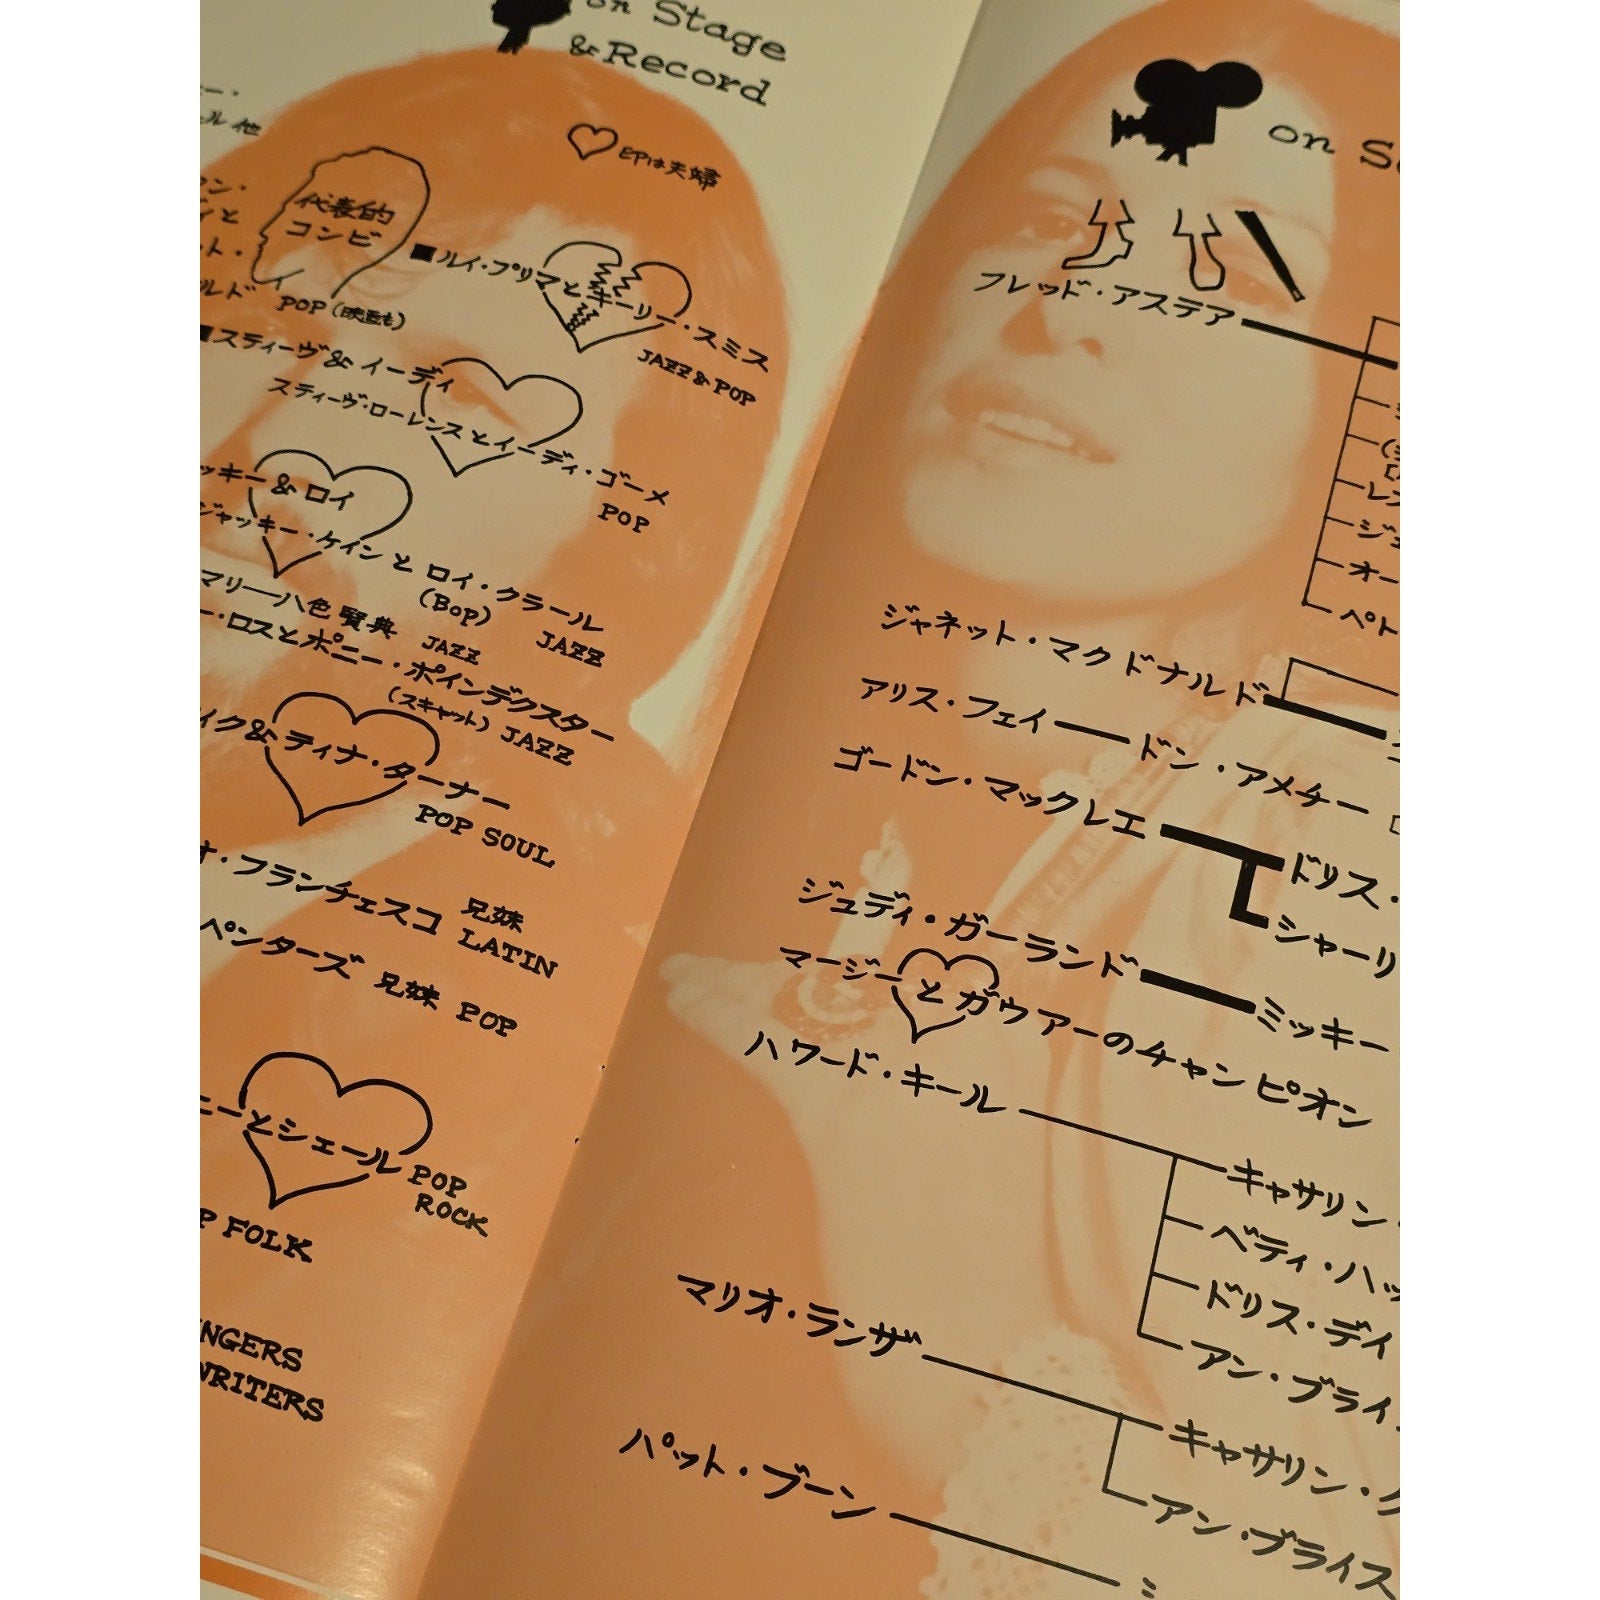 on Stage
& Record
ル 他
♡印は夫婦
代表的
コンビ
■ルイ・プリマとキーリー・スミス
JAZZ & POP
ルド POP (映画も)
■スティーヴ&イーディ
スティーヴ・ローレンスとイーディ・ゴーメ
POP
ッキー&ロイ
ジャッキー・ケインとロイ・クラール
(BOP) JAZZ
マリー―八色賢典 JAZZ
ー・ロスとポニー・ポインデクスター
(スキャット) JAZZ
イク&ティナ・ターナー
POP SOUL
オ・フランチェスコ 兄妹
LATIN
ペンターズ 兄妹 POP
ニーとシェール POP
ROCK
P FOLK
NGERS
WRITERS
on
フレッド・アステア
レス
オー
ペト
ジャネット・マクドナルド
アリス・フェイ―ドン・アメチー
ゴードン・マックレエ
ドリス・
シャーリ
ジュディ・ガーランド
ミッキー
マージーとガウアーのチャンピオン
ハワード・キール
キャサリン・
ベティ・ハッ
ドリス・デイ
アン・ブライ
マリオ・ランザ
キャサリン・
アン・ブライス
パット・ブーン